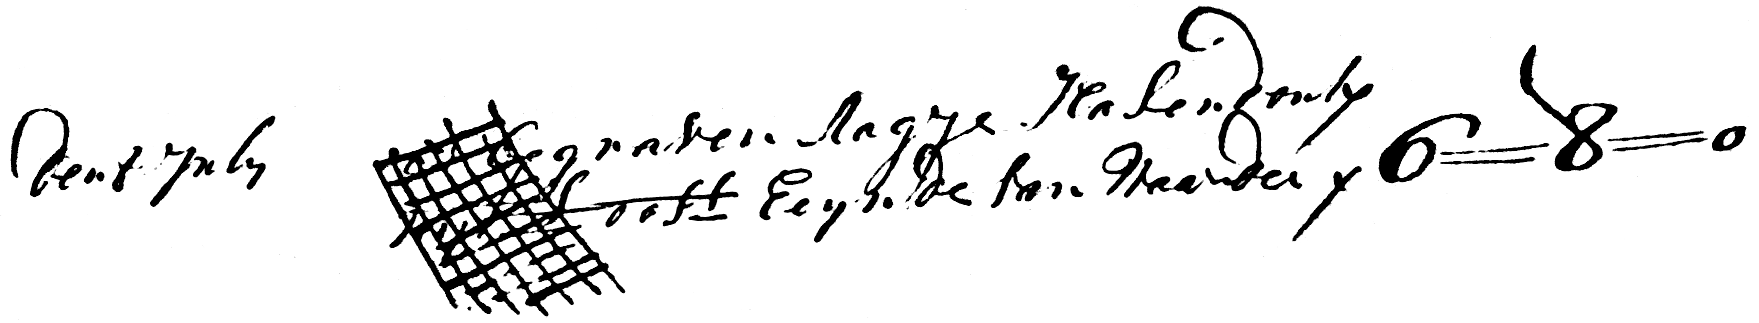 den 8 July begraven Aagje Hasendonk
oost Eeynde van Naarden 6=8=0